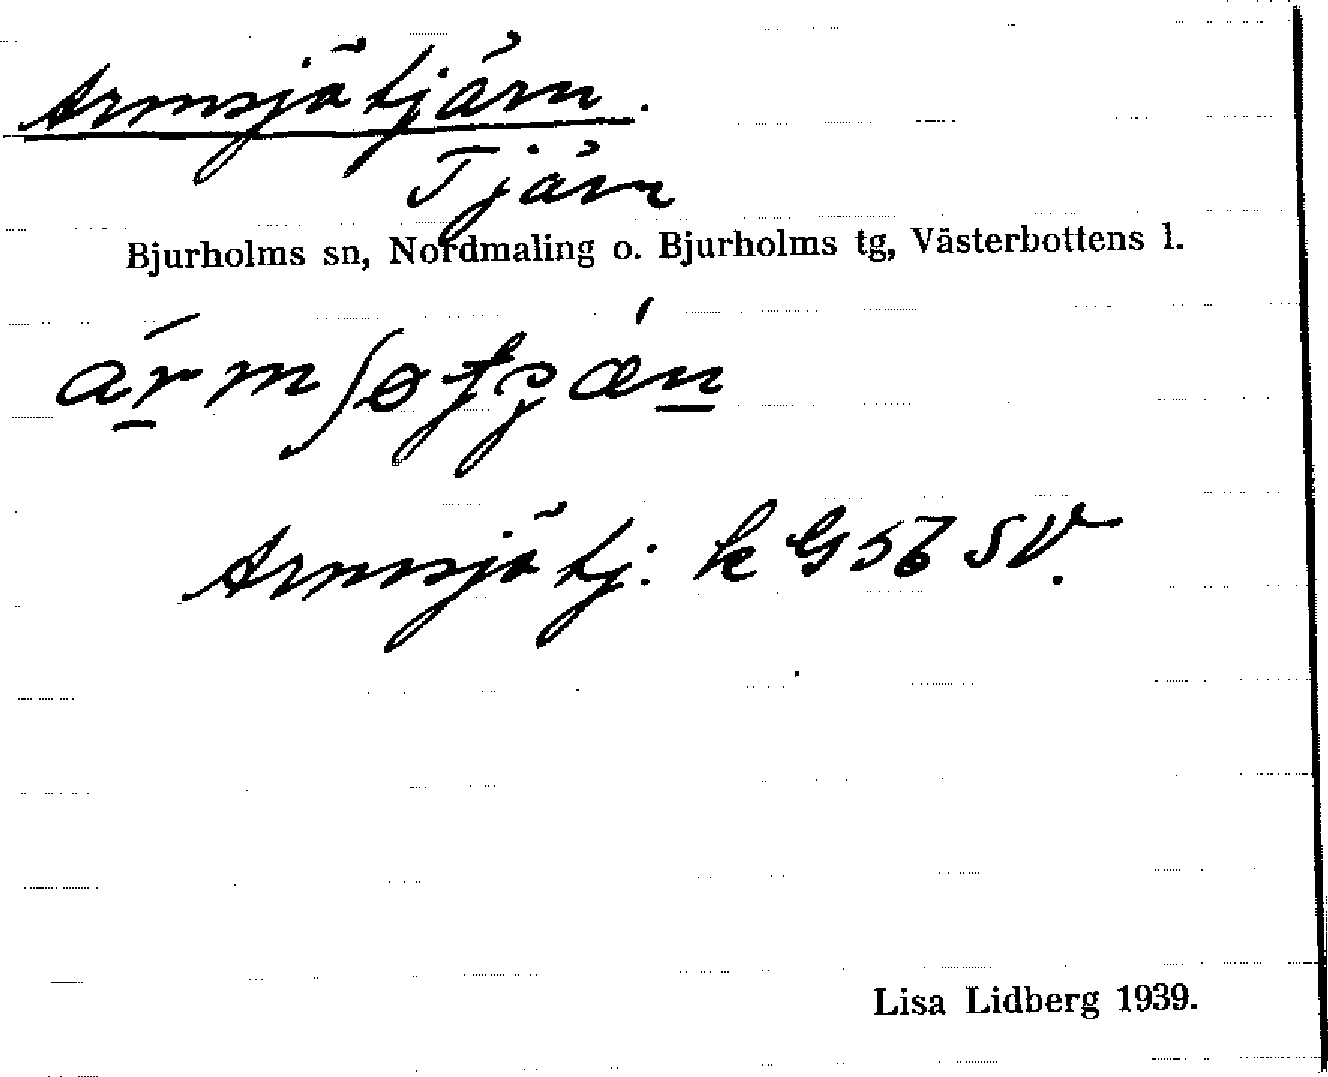 Armsjötjärn.
Tjärn
Bjurholms sn, Nordmaling o. Bjurholms tg, Västerbottens l.
Armsjötj: k G 56 SV.
Lisa Lidberg 1939.